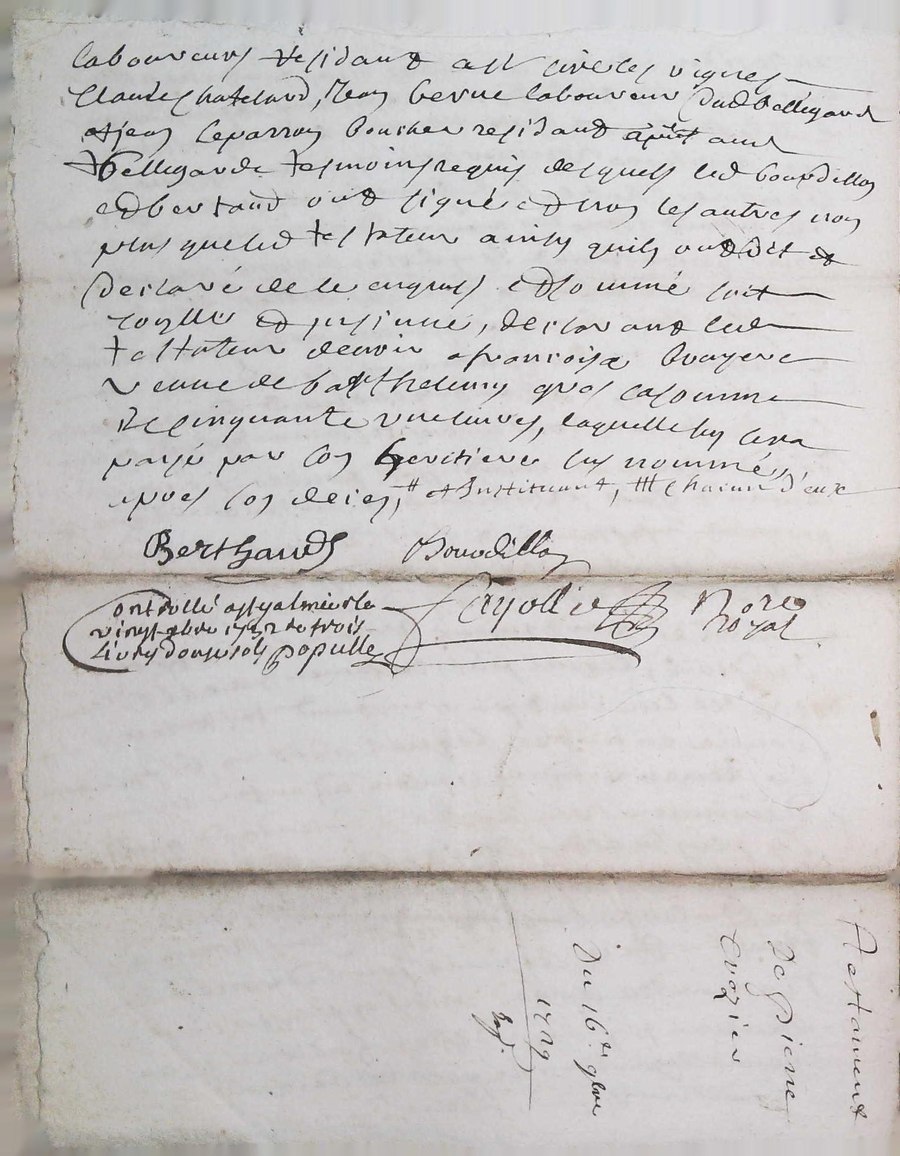 laboureurs residant a st sire les vignes
Claude Chatelard, Jean laboureur dud Bellegarde
et jean boucher residant aud
Bellegarde tesmoins requis desquels led bourdillon
et bertaud ont signé et non les autres non
plus que led testateur ainsy quils ont dit et
declaré de ce enquis et sommé soit
et insinué, declarant led
testateur devoir a francoise
veuve de barthelemy la somme
de cinquante une livres, laquelle luy sera
payé par son heritiere sus nommé
apres son deces, # et Instituant, ### chacun d'eux
Berthaud Bourdillon
Controllé a st galmier le
vingt 9bre 1732 Re trois
Livres douze sols Populle
Nore
Royal
Testament
De Piere
Crozier
Du 16e 9bre
1729